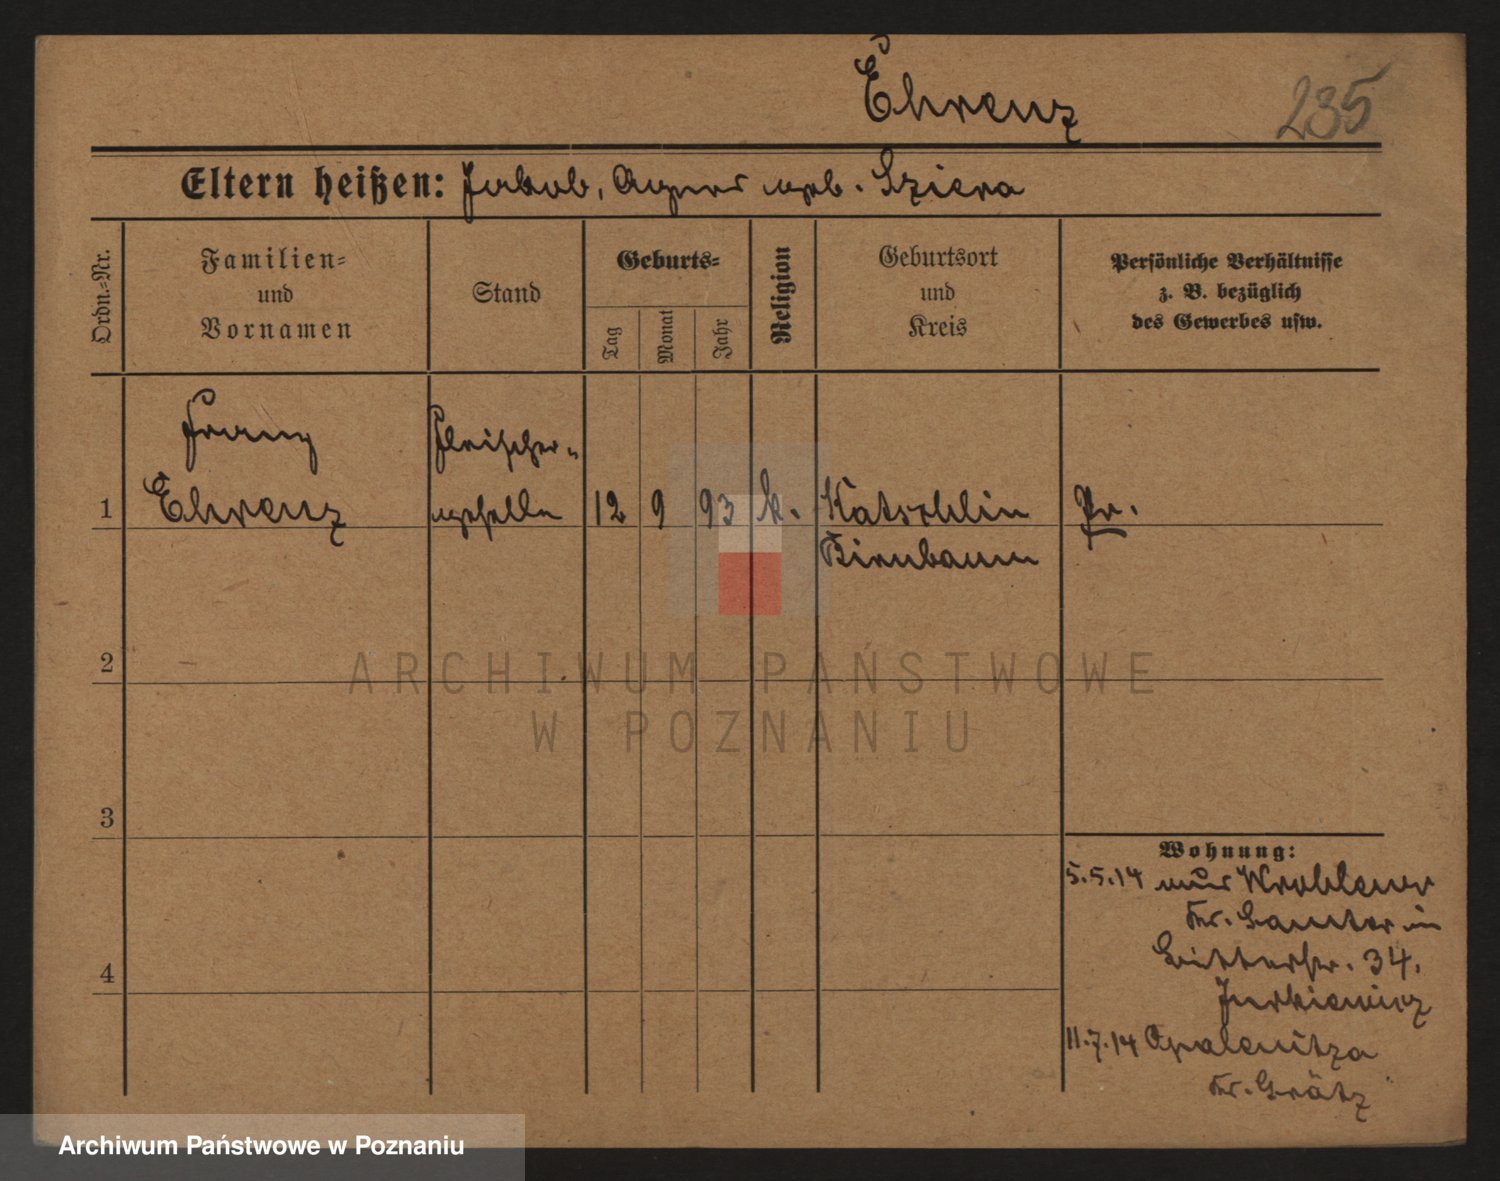 Ehrenz
235
Eltern heißen: Jakob, Agnes geb. Sziera
Ordn.-Nr.
Familien-
und
Vornamen
Stand
Geburts-
Tag
Monat
Jahr
Religion
Geburtsort
und
Kreis
Persönliche Verhältnisse
z. B. bezüglich
des Gewerbes usw.
Franz
Ehrenz
Fleischer-
geselle
1
12
9
93
k.
Katschlin
Birnbaum
Pr.
2
3
4
Wohnung:
5.5.14 aus Wroblewo
Kr. Samter in
Ritterstr. 34.
Jurkiewicz
11.7.14 Opalenitza
Kr. Grätz
ARCHIWUM PAŃSTWOWE
W POZNANIU
Archiwum Państwowe w Poznaniu